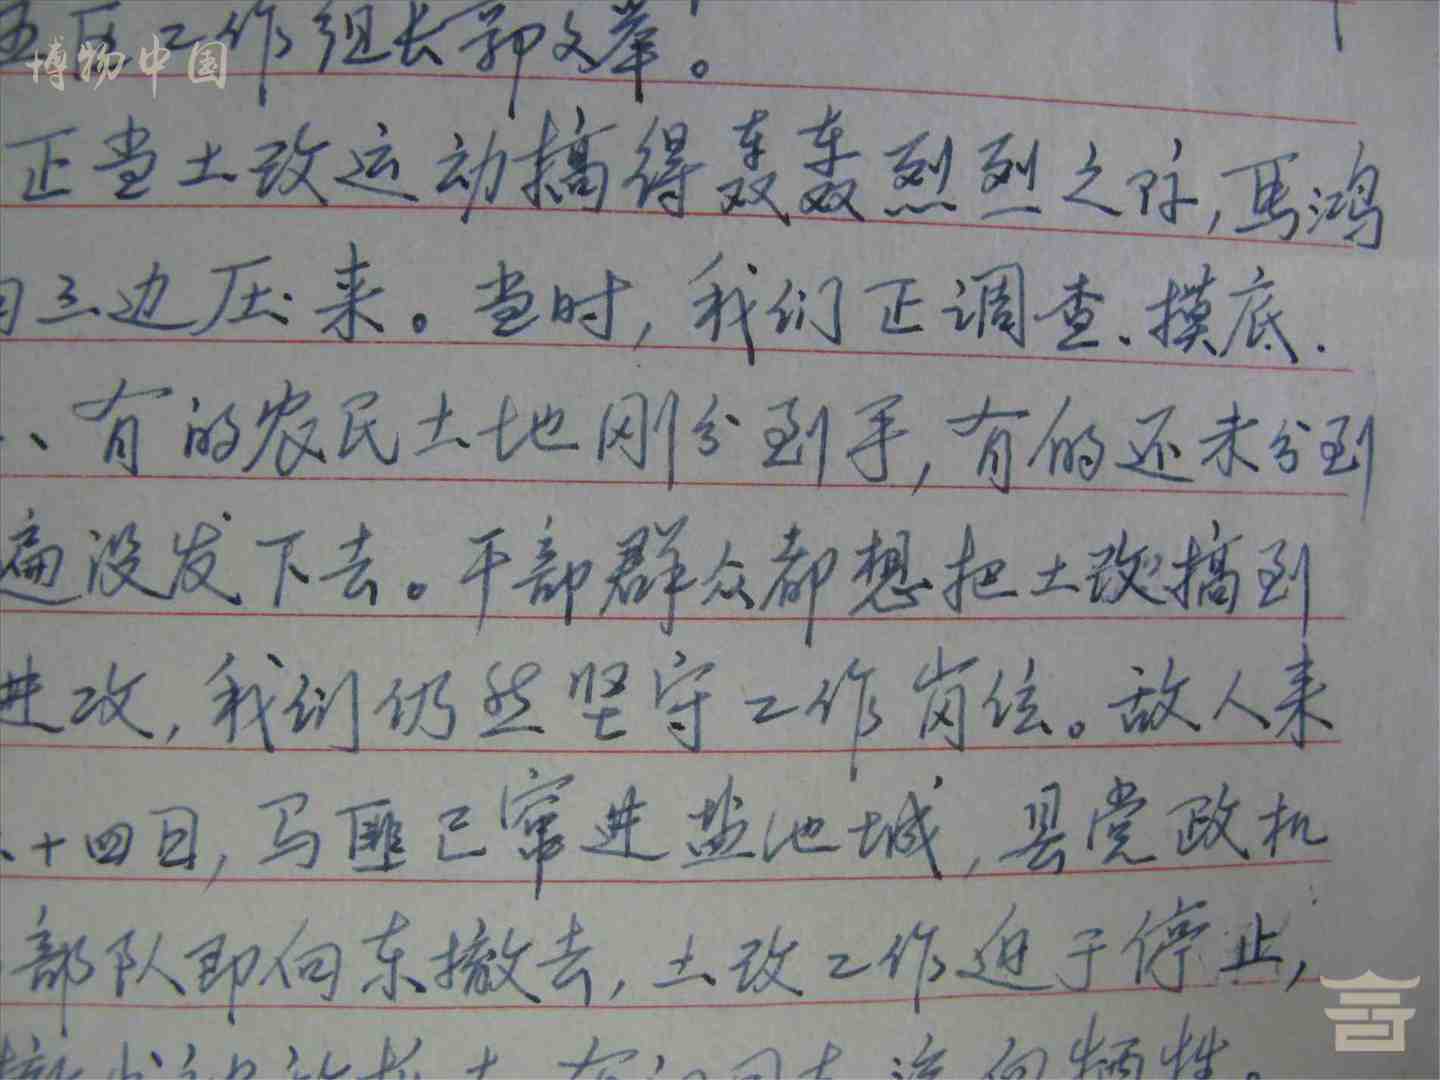 五区工作组长郭文举。
博物中国
正当土改运动搞得轰轰烈烈之际,马鸿
向三边压来。当时,我们正调查、摸底.
、有的农民土地刚分到手,有的还未分到
遍没发下去。干部群众都想把土改搞到
进攻,我们仍然坚守工作岗位。敌人来
、十四日,马匪已窜进盐池城,县党政机
部队即向东撤去,土改工作迫于停止,
牺牲。